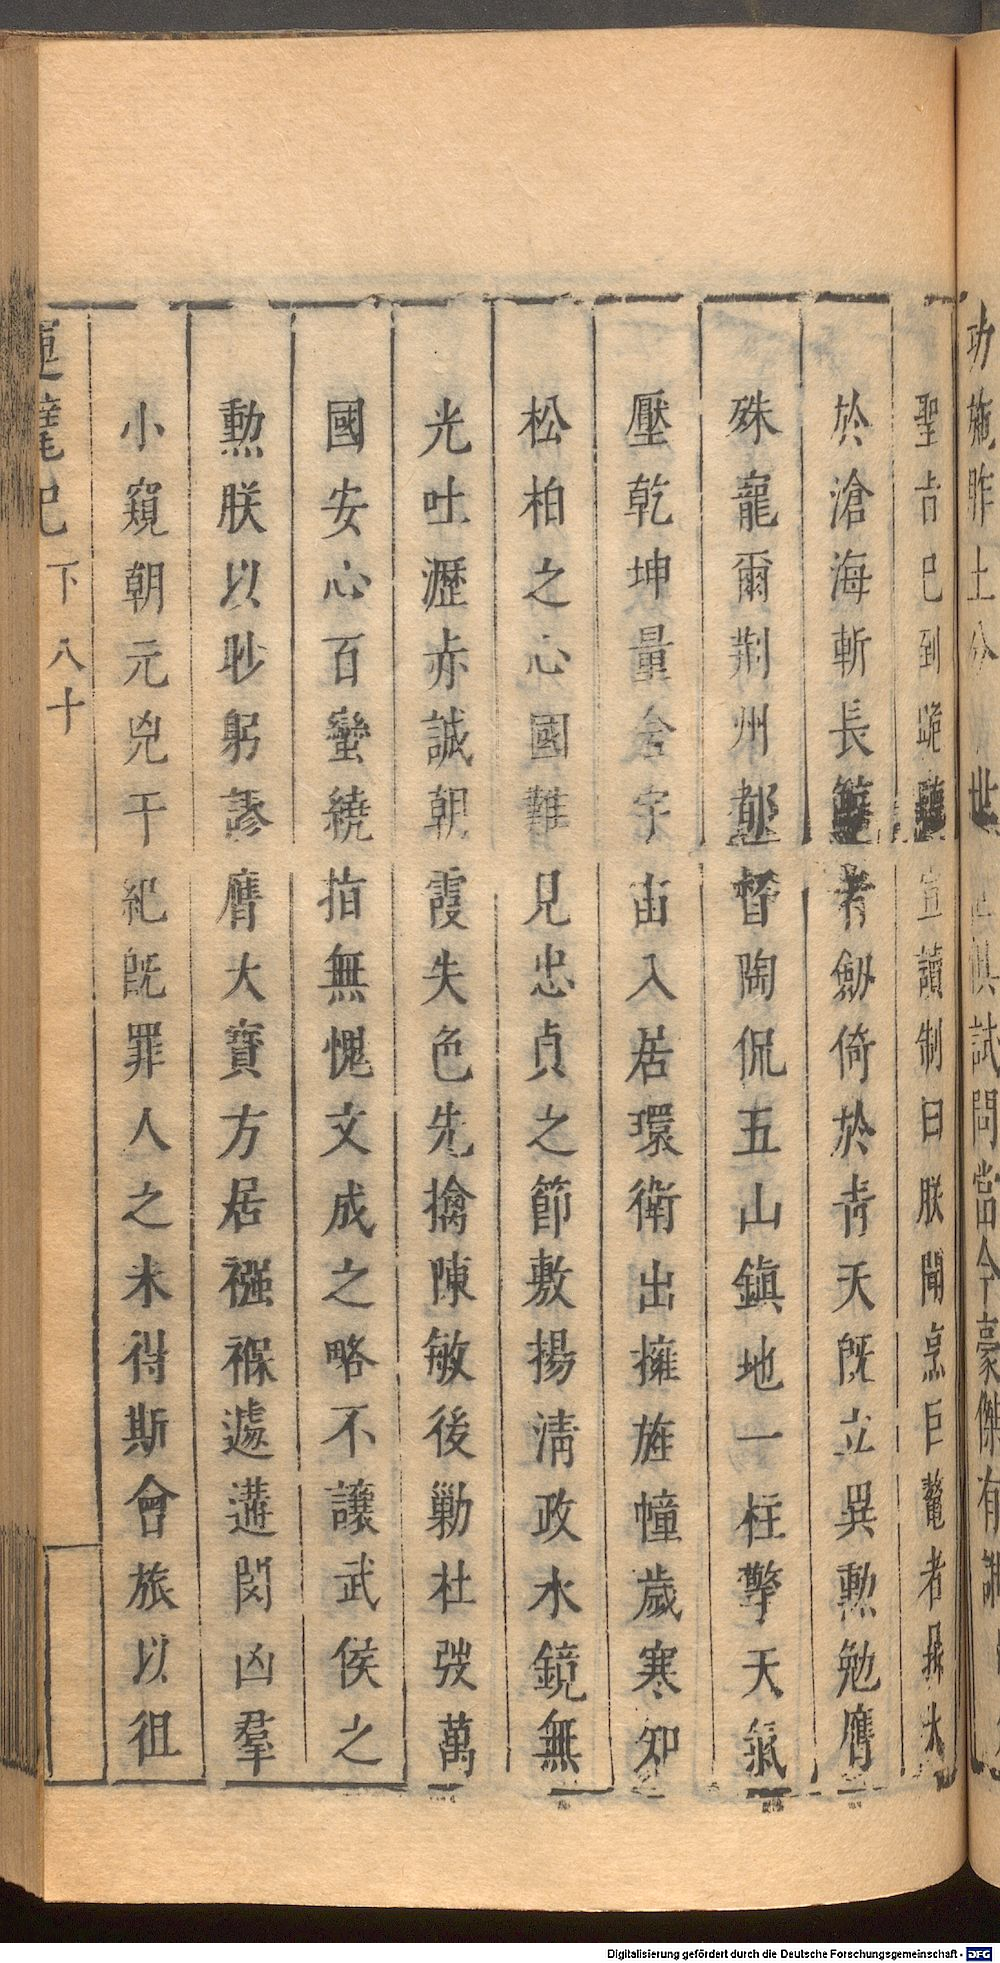 功施胙土分 世 俱試問當今豪傑有誰
聖旨已到跪聽宣讀制曰朕聞烹巨鼇者最大
於滄海斬長鯨者劍倚於青天既立異勲勉膺
殊寵爾荆州都督陶侃五山鎮地一柱擎天氣
壓乾坤量舍宇宙入居環衛出擁旌幢歲寒知
松柏之心國難見忠貞之節敷揚清政水鏡無
光吐瀝赤誠朝霞失色先擒陳敏後勦杜弢萬
國安心百蠻繞指無愧文成之略不讓武侯之
勲朕以眇躬謬膺大寶方居襁褓遽遘閔凶羣
小窺朝元兇干紀旣罪人之未得斯會旅以徂
運甓記 下 八十
Digitalisierung gefördert durch die Deutsche Forschungsgemeinschaft - DFG